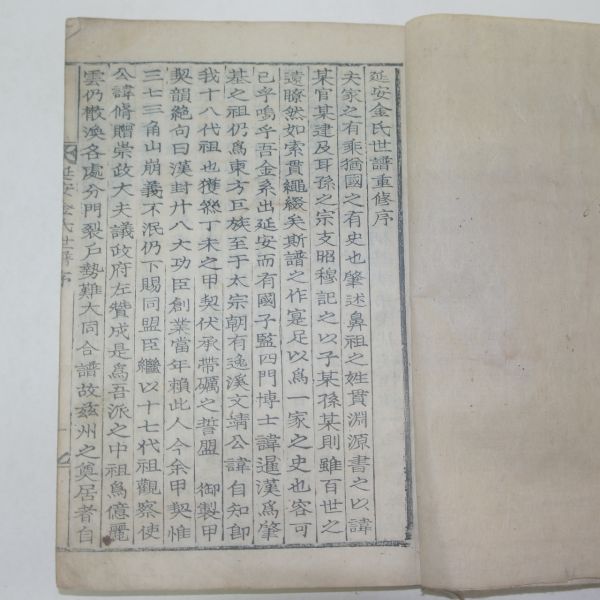 延安金氏世譜重修序
夫家之有乘猶國之有史也肇述鼻祖之姓貫淵源書之以諱
某官某建及耳孫之宗支昭穆記之以子某孫某則雖百世之
遠瞭然如索貫繩綴矣斯譜之作寔足以爲一家之史也容可
已乎嗚乎吾金系出延安而有國子監四門博士諱暹漢爲肇
基之祖仍爲東方巨族至于太宗朝有逸溪文靖公諱自知卽
我十八代祖也獲叅丁未之甲契伏承帶礪之誓盟 御製甲
契韻絶句曰漢封廿八大功臣創業當年賴此人今余甲契惟
三七三角山崩義不泯仍下賜同盟臣繼以十七代祖觀察使
公諱脩贈崇政大夫議政府左贊成是爲吾派之中祖焉億麗
雲仍散渙各處分門裂戶勢難大同合譜故玆州之奠居者自
延安金氏世譜序